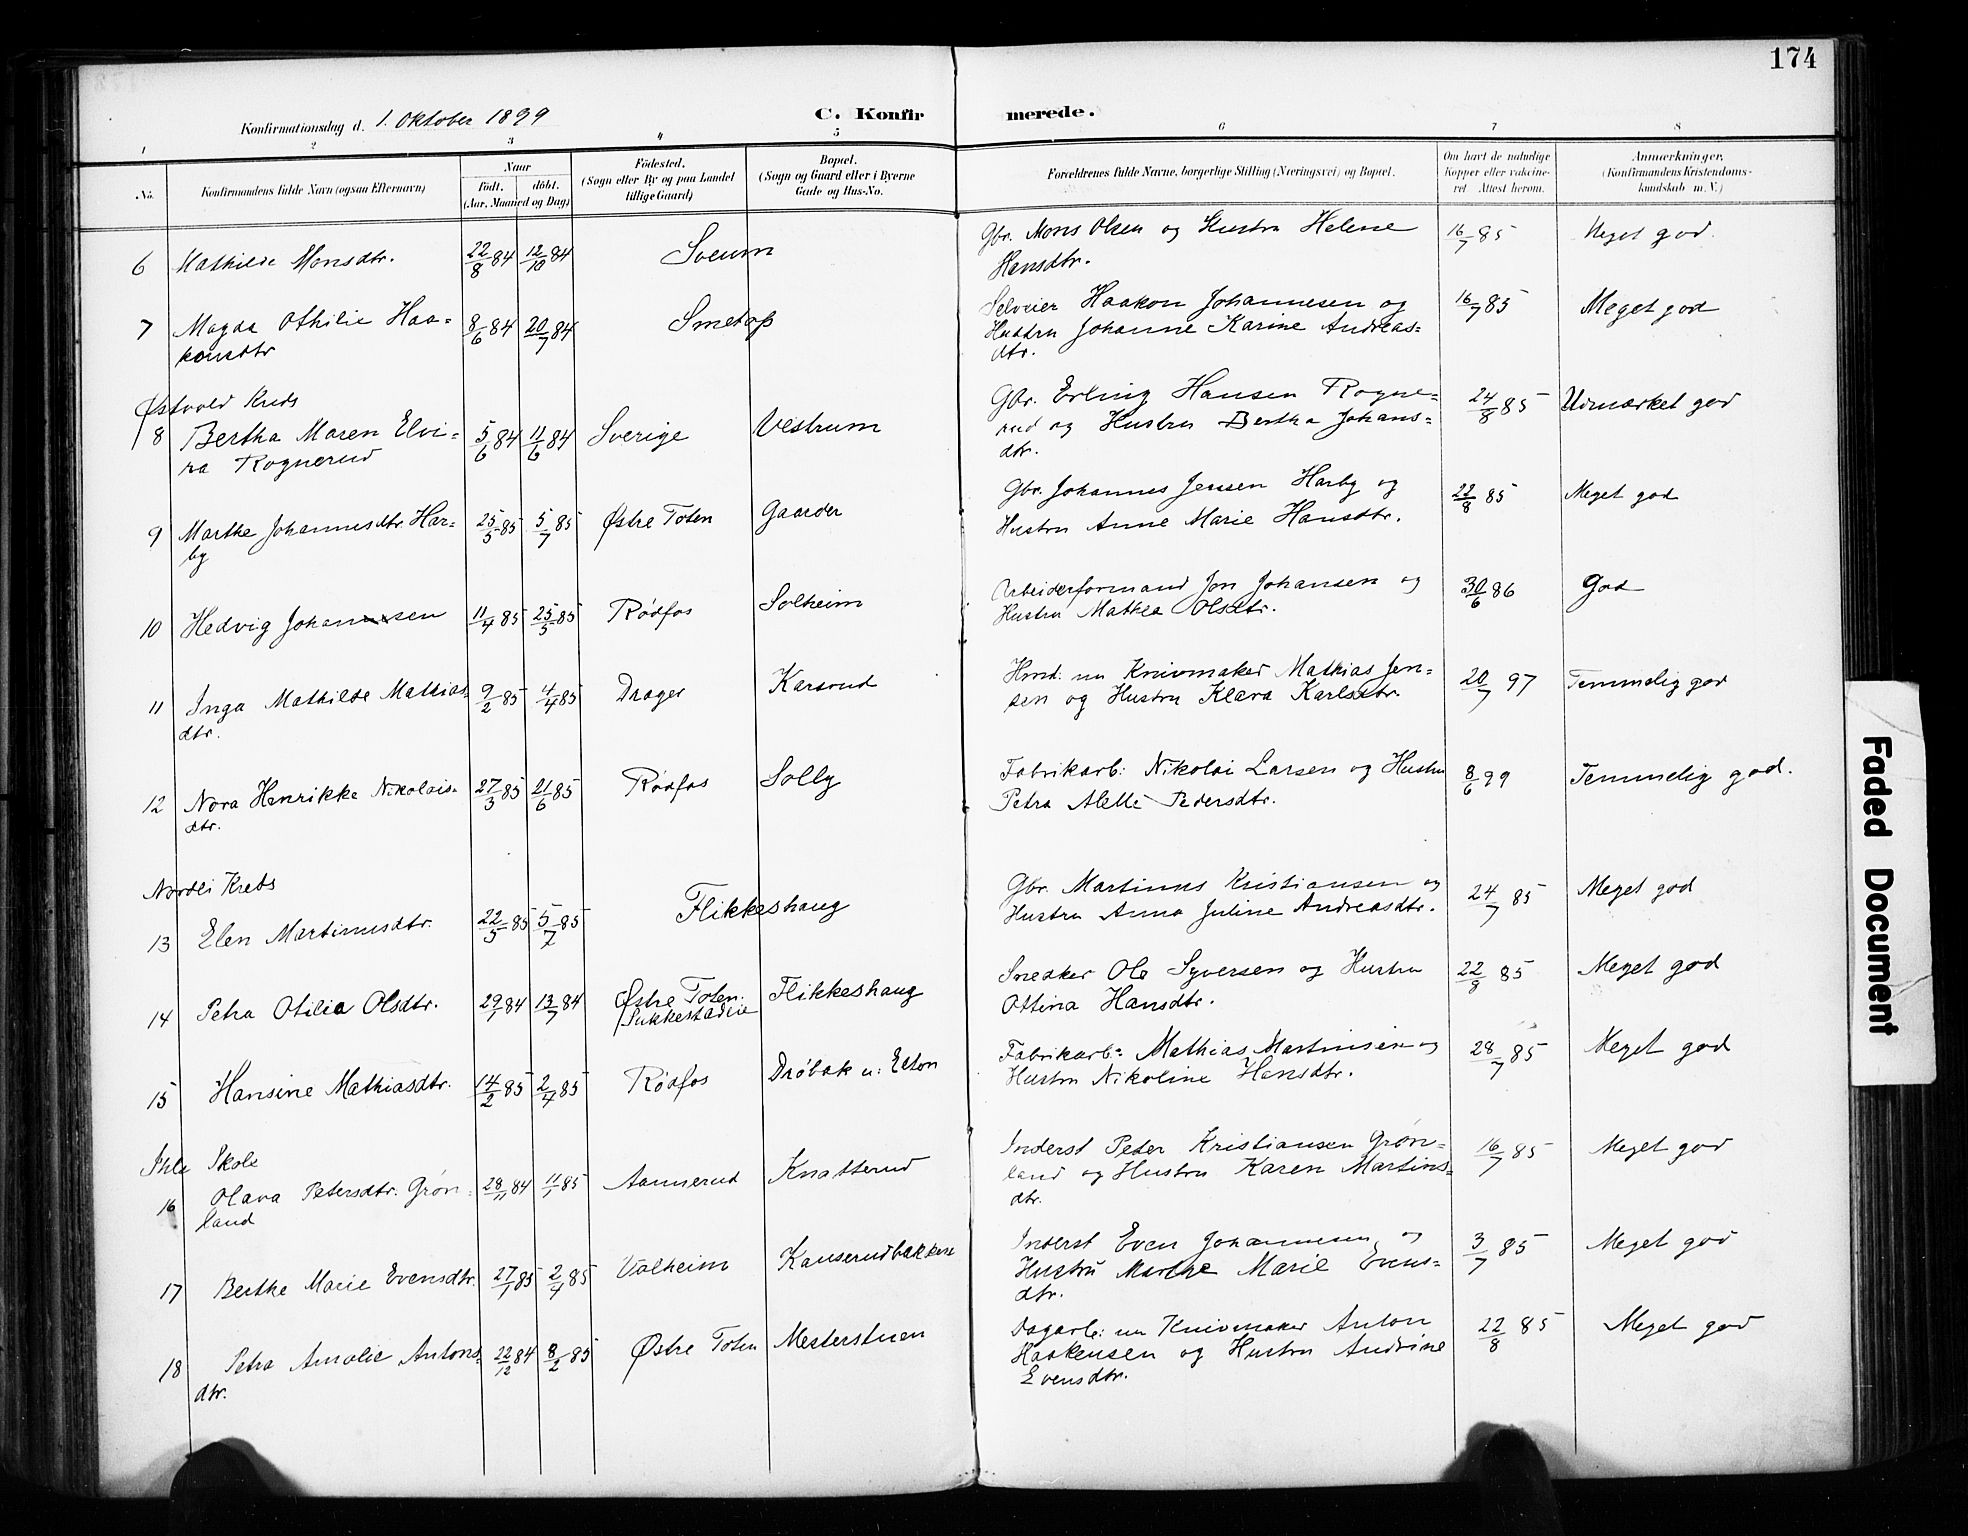 174
Konfirmationsdag d. 1. Oktober 1899
C. Konfirmerede.
1 2 3 4 5 6 7 8
No.
Konfirmandens fulde Navn (ogsaa Efternavn)
Naar
født. døbt.
(Aar, Maaned og Dag)
Fødested.
(Sogn eller By og paa Landet
tillige Gaard)
Bopæl.
(Sogn og Gaard eller i Byerne
Gade og Hus-No.
Forældrenes fulde Navne, borgerlige Stilling (Næringsvei) og Bopæl.
Om havt de naturlige
Kopper eller vaccine-
ret. Attest herom.
Anmærkninger.
(Konfirmandens Kristendoms-
kundskab m. V.)
6 Mathilde Monsdtr. 22/8 84 12/10 84 Sveum Gbr. Mons Olsen og Hustru Helene 16/7 85 Meget god.
Hansdtr.
7 Magda Othilie Haa- 8/6 84 20/7 84 Smetop Selveier Haakon Johannesen og 16/7 85 Meget god
konsdtr Hustru Johanne Karine Andreas-
dtr.
Østvold Kreds
8 Bertha Maren Elvi- 5/6 84 11/6 84 Sverige Vestrum Gbr. Erling Hansen Rogne- 24/8 85 Udmærket god
ra Rognerud rud og Hustru Bertha Johans-
dtr.
9 Marthe Johannesdtr. Har- 25/5 85 5/7 85 Østre Toten Gaarder Gbr. Johannes Jensen Harby og 22/8 85 Meget god
by Hustru Anne Marie Hansdtr.
10 Hedvig Johansen 11/4 85 25/5 85 Rødfos Solheim Arbeiderformand Jon Johansen og 30/6 86 God
Hustru Mathea Olsdtr.
11 Inga Mathilde Mathias- 9/2 85 4/4 85 Drager Karsrud Hmd. nu Knivmaker Mathias Jen- 20/7 97 Temmelig god
dtr. sen og Hustru Klara Karlsdtr.
12 Nora Henrikke Nikolais- 27/3 85 21/6 85 Rødfos Solly Fabrikarb: Nikolai Larsen og Hustru 8/6 99 Temmelig god.
dtr. Petra Alette Pedersdtr.
Nordli Kreds
13 Elen Martinusdtr. 22/5 85 5/7 85 Flikkeshaug Gbr. Martinus Kristiansen og 24/7 85 Meget god
Hustru Anna Juline Andreasdtr.
14 Petra Otilia Olsdtr. 29/1 84 13/7 84 Østre Toten. Flikkeshaug Snedker Ole Syversen og Hustru 22/8 85 Meget god
Ottina Hansdtr.
15 Hansine Mathiasdtr. 14/2 85 2/4 85 Rødfos Drøbak u: Elton Fabrikarb: Mathias Martinsen og 28/7 85 Meget god
Hustru Nikoline Hansdtr.
Ihle Skole
16 Olava Petersdtr. Grøn- 28/11 84 11/1 85 Aannerud Knatterud Inderst Peter Kristiansen Grøn- 16/7 85 Meget god
land land og Hustru Karen Martins-
dtr.
17 Berthe Marie Evensdtr. 27/1 85 2/4 85 Valheim Kanserudbakken Inderst Even Johannesen og 3/7 85 Meget god
Hustru Marthe Marie Evens-
dtr.
18 Petra Amalie Antons- 22/12 84 8/2 85 Østre Toten Mesterstuen Dagarb: nu Knivmaker Anton 22/8 85 Meget god
dtr. Haakensen og Hustru Andrine
Evensdtr.
Faded Document